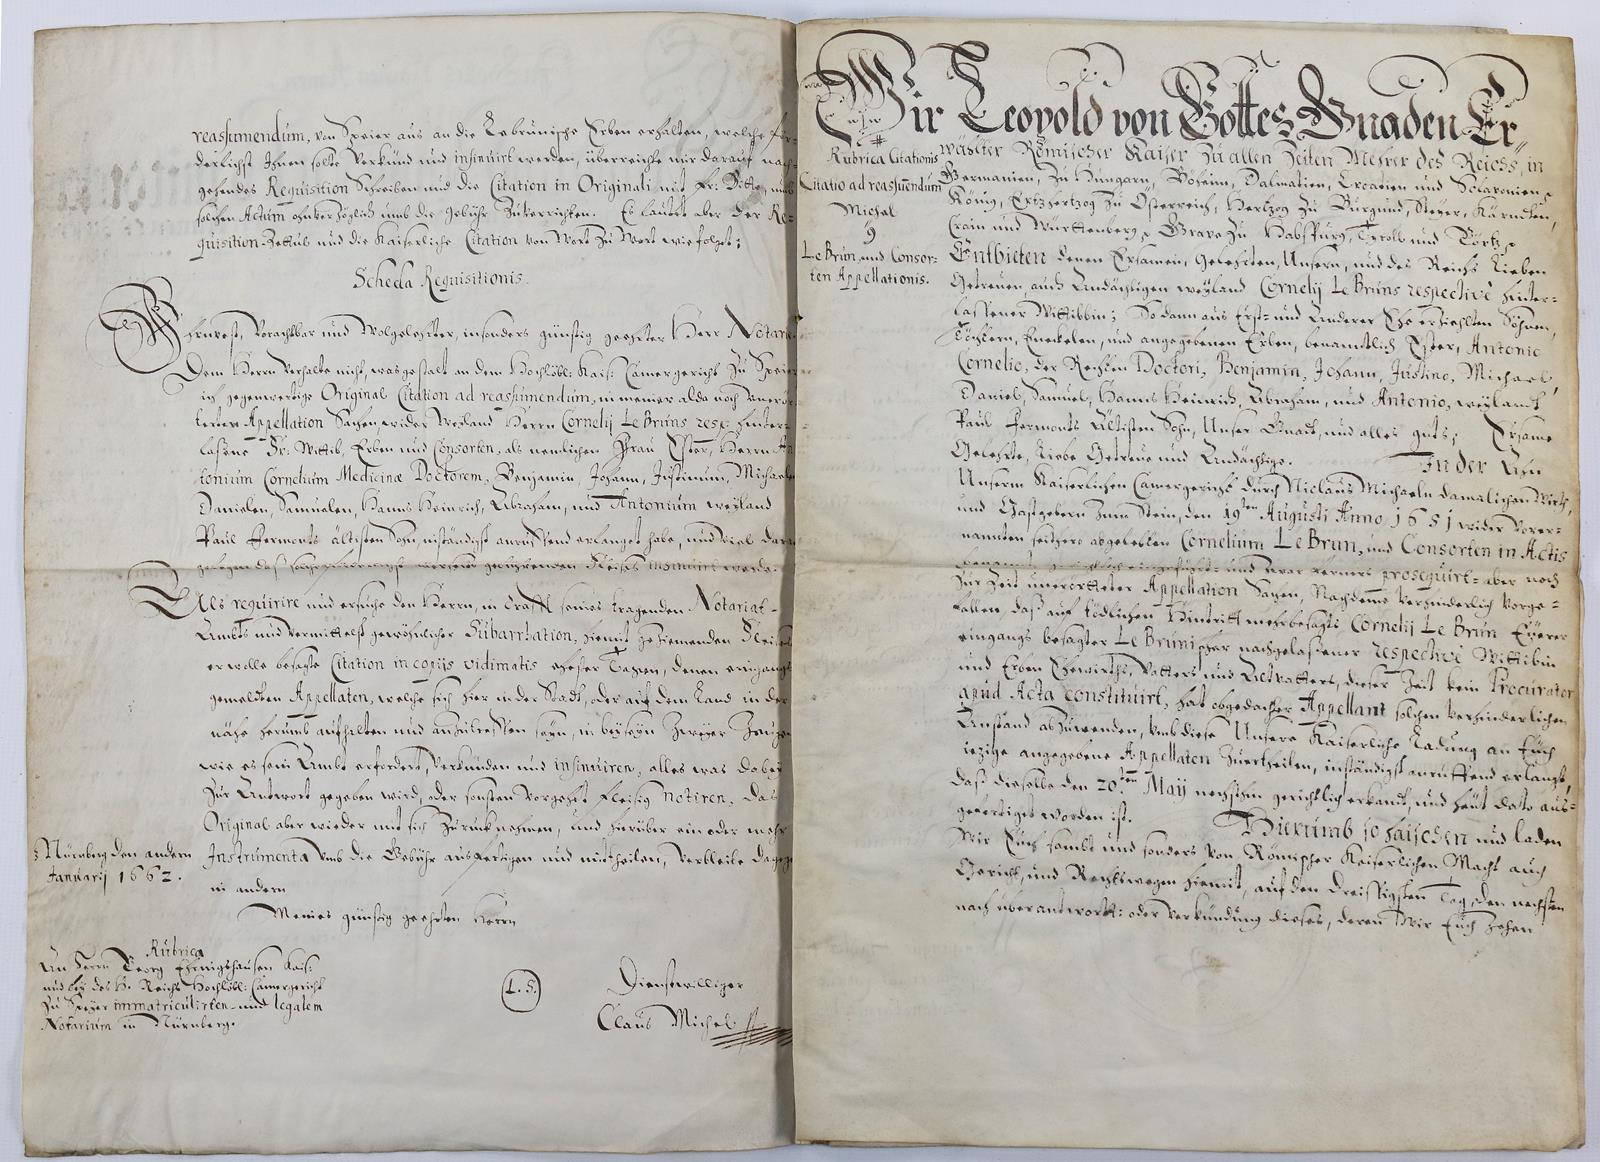 reassumendum, von Speier aus an die Lebrunische Erben erhalten, welche för-
derlichst Ihnen solte verkünd und insinuirt werden, überreichte mir darauf nach-
gehendes Requisition Schreiben und die Citation in Originali mit Fr: Bitte, umb
solchen Actum ohnverzöglich umb die gebühr zuverrichten. Es lautet aber der Re-
quisition-Zettul und die Kaiserliche Citation von Wort zu Wort wie folget:
Scheda Requisitionis.
Ehrnvest, Vorachtbar und Wolgelehrter, insonders günstig geehrter Herr Notarie
Dem Herrn verhalte nicht, was gestalt an dem Hochlöbl: Kais: Camergericht zu Speier
ich gegenwertige Original Citation ad reassumendum, in meiner alda noch unerör-
terten Appellation Sachen, wider Weiland Herrn Cornelij Le Bruns resp: hinter-
laßene Fr: Wittib, Erben und Consorten, als nemlichen Frau Ester, Herrn An-
tonium Cornelium Medicinæ Doctorem, Benjamin, Johann, Justinum, Michaeln
Danielen, Samuelen, Hanns Heinrich, Abraham, und Antonium weyland
Paul Fermonts ältisten Sohn, inständigst anruffend erlanget habe, und viel daran
gelegen daß insinuirt werde.
Als requirire und ersuche den Herrn, in Crafft seines tragenden Notariat-
Ambts und vermittelst gewöhnlicher Subarrhation, hiemit geziemenden Fleises
er wolle besagte Citation in copijs vidimatis ehester Tagen, denen eingangs
gemeldten Appellaten, welche sich hier in der Stadt, oder auf dem Land in der
nähe herumb aufhalten und anzutreffen seyn, in beysein zweyer Zeugen
wie es sein Ambt erfordert, verkünden und insinuiren, alles was dabey
zur Antwort gegeben wird, oder sonsten vorgehet fleisig notiren, das
Original aber wieder mit sich zurück nehmen, und hierüber ein oder mehr
Instrumenta umb die Gebühr ausfertigen und mittheilen, verbleibe dagegen
in andern
Nürnberg den andern
Januarij 1662.
Meines günstig geehrten Herrn
Rubrica
An Herrn Georg Kais:
und bey des H. Reichs Hochlöbl: Camergericht
zu Speyer immatriculirten und legalem
Notarium in Nürnberg.
L.S.
Dienstwilliger
Claus Michel
Wir Leopold von Gottes Gnaden Er-
wählter Römischer Kaiser zu allen Zeiten Mehrer des Reichs, in
Germanien, zu Hungarn, Böheim, Dalmatien, Croatien und Sclavonien
König, Ertzhertzog zu Österreich, Hertzog zu Burgund, Steyer, Kärndten,
Crain und Württenberg, Grave zu Habspurg, Tyroll und Görtz
Rubrica Citationis
Citatio ad reassumendum
Michel
Le Brun und Consor-
ten Appellationis.
Entbieten denen Ersamen, Gelehrten, Unsern, und des Reichs Lieben
Getreuen, auch Andächtigen weyland Cornelij Le Bruns respectivè hinter-
lassener Wittibbin; So dann aus Erst- und Anderer Ehe erziehlten Söhnen,
Töchtern, Enickelen, und angegebenen Erben, benanntlich Ester, Antonio
Cornelio, der Rechten Doctori, Benjamin, Johann, Justino, Michael,
Daniel, Samuel, Hanns Heinrich, Abraham, und Antonio, weylandt
Paul Fermonts Ältisten Sohn, Unser Gnad, und alles guts; Ersame
Gelehrte, Liebe Getreue und Andächtige. In der An
Unserm Kaiserlichen Camergericht durch Niclaus Michaeln damalichen Wirth,
und Gastgebern zum Stein, den 19ten Augusti Anno 1651 wider Vorer-
nannten seithero abgelebten Cornelium Le Brun, und Consorten in Actis
benannt, und zwar ferners prosequirt- aber noch
zur Zeit unerörtheter Appellation Sachen, Nachdeme verhinderlich vorge-
fallen, daß auf tödlichen Hintritt mehrbesagts Cornelij Le Brun Eyerer
eingangs besagter Le Brunischer nachgelaßener respectivè Wittibin
und Erben Ehewirths, Vatters und Altvatters, dieser Zeit kein Procurator
apud Acta constituirt, hat obgedachter Appellant solchen verhinderlichen
Anstand abzuwenden, umb diese Unsere Kaiserliche Ladung an Euch
iezige angegebene Appellaten zuertheilen, inständigst anruffend erlangt,
daß dieselbe den 20ten Maij nechsthin gerichtlich erkandt, und heut dato aus-
gefertiget worden ist. Hierumb so haischen und laden
Wir Euch sambt und sonders von Römischer Kaiserlichen Macht auch
Gericht, und Rechtswegen hiemit, auf den dreissigsten Tag, den nechsten
nach überantwort: oder verkündung dieses, deren Wir Euch zehen